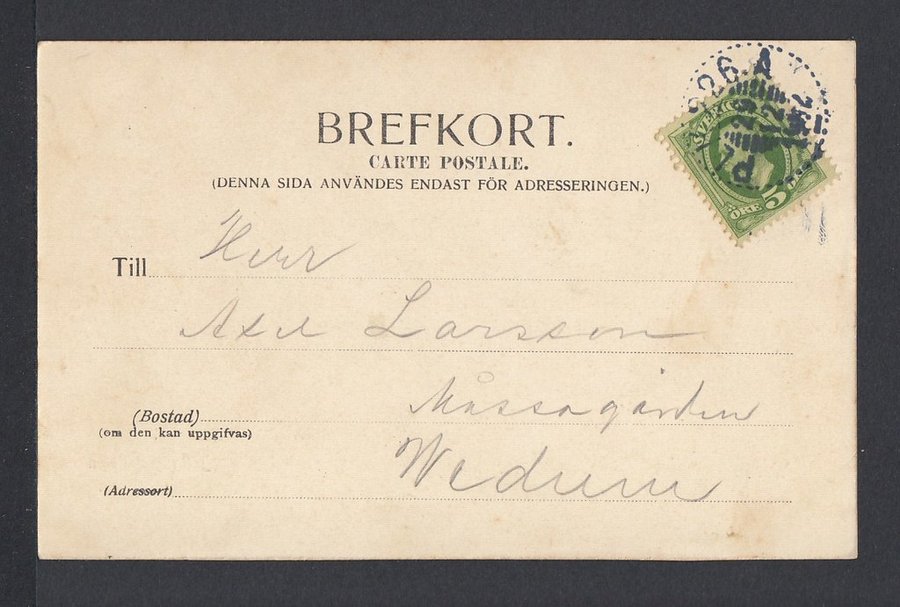 BREFKORT.
CARTE POSTALE.
(DENNA SIDA ANVÄNDES ENDAST FÖR ADRESSERINGEN.)
Till Herr
Axel Larsson
(Bostad) Måssagården
(om den kan uppgifvas)
(Adressort) Wedum
226 A
SVERIGE
5
ÖRE